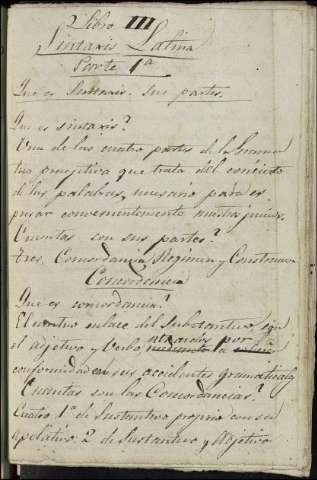 Libro III
Sintaxis Latina
Parte 1ª
Que es Sintaxis. Sus partes.
Que es sintaxis?
Una de las cuatro partes de la Grama
tica preceptiva que trata del concierto
de las palabras, necesario para es
presar convenientemente nuestros juicios.
Cuantas son sus partes?
tres, Concordancia Régimen y Construccion
Concordancia
Que es concordancia?
El enlace del Substantivo con
el Adjetivo y Verbo por
conformidad en sus accidentes gramaticales
Cuantas son las Concordancias?
Cuatro 1ª de Sustantivo propio con su
apelativo. 2 de Sustantivo y Adjetivo